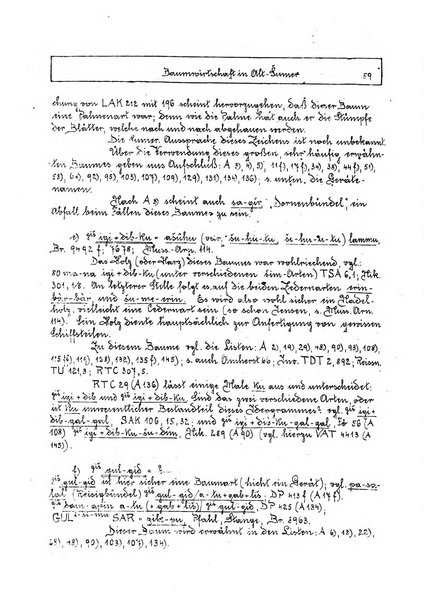 Baumwirtschaft in Alt-Sumer 59
chung von LAK 212 mit 196 scheint hervorzugehen, daß dieser Baum
eine Palmenart war; denn wie die Palme hat auch er die Stümpfe
der Blätter, welche nach und nach abgehauen werden.
Die sumer. Aussprache dieses Zeichens ist noch unbekannt.
Über die Verwendung dieses großen, sehr häufig erwähn-
ten Baumes geben uns Aufschluß: A 2), 4), 5), 11 f), 17 f), 34), 38), 44 f), 51),
53), 60), 92), 93), 103), 107), 109), 129), 131), 134), 136). s. unten, die Geräte-
namen.
Nach A 2) scheint auch sa-gir „Dornenbündel" ein
Abfall beim Fällen dieses Baumes zu sein.
e) giš igi+dib-ku = ašûhu (var. šu-hu-tu, ) lammu,
Br. 9492 f; 7678; Muss-Arn. 114.
Das Holz (oder Harz) dieses Baumes war wohlriechend, vgl.
80 ma-na igi+dib-ku (unter verschiedenen šim-Arten) TSA 6,1; Nik.
301, 1.8. An letzterer Stelle folgt u. auf die beiden Zedernarten erin-
bár-bár und šu-me-erin. Es wird also wohl sicher ein Nadel-
holz, vielleicht eine Zedernart sein (so schon Jensen, s. Muss-Arn.
114). Sein Holz diente hauptsächlich zur Anfertigung von gewissen
Schiffsteilen.
Zu diesem Baume vgl. die Listen: A 2), 19), 29), 48), 90), 93), 108),
115 f), 119), 128), 132), 135 f), 145); s. auch Amherst 66; Inv. TDT 2, 892; Reisn.
TU 121,3; RTC 307,5.
RTC 29 (A 136) lässt einige Male ku aus und unterscheidet:
giš igi+dib und giš igi+dib-ku. Sind das zwei verschiedene Arten, oder
ist ku unwesentlicher Bestandteil dieses Ideogrammes? vgl. giš igi+
dib-gal-gal, SAK 106, 15, 32, und giš igi+dib-ku-gal-gal, 56 (A
108) giš igi+dib-ku-šu-dim, Nik. 289 (A 90) (vgl. hierzu VAT 4413 (A
145)).
f) giš gul-gid = ?
giš gul-gid ist hier sicher eine Baumart (nicht ein Gerät); vgl. pa-sa-
lal (Reisigbündel) giš gul-gid/a-lu+gab+lis, DP 413 f (A 17 f).
giš (+gab+lis)/giš gul-gid DP 425 (A 134);
GUL SAR = zik-pu, Pfahl, Stange, Br. 8963.
Dieser Baum wird erwähnt in den Listen: A 6), 18), 22),
65), 48), 90), 103), 107), 134).